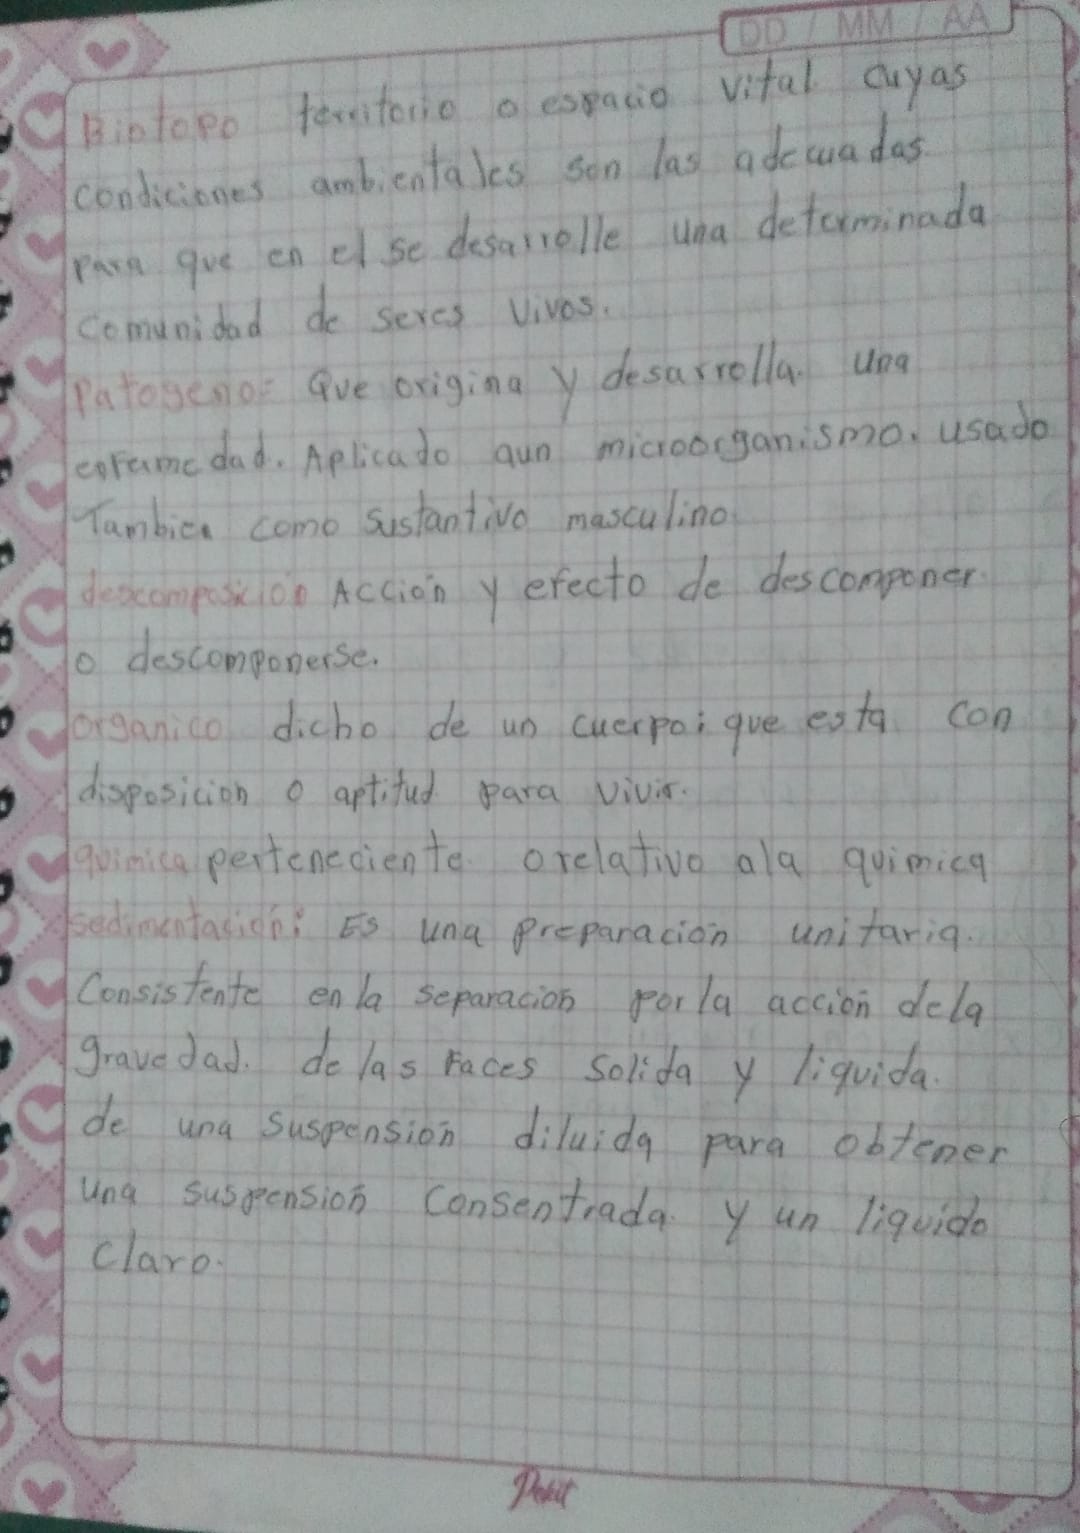 DD / MM / AA
Biotopo territorio o espacio vital cuyas
condiciones ambientales son las adecuadas
para que en el se desarrolle una determinada
comunidad de seres vivos.
Patogeno= Que origina y desarrolla. una
enfermedad. Aplicado aun microorganismo. usado
Tambien como sustantivo masculino
descomposicion Acción y efecto de descomponer
o descomponerse.
organico dicho de un cuerpo; que esta con
disposicion o aptitud para vivir.
quimica perteneciente o relativo ala quimica
sedimentasión: Es una preparación unitaria.
Consistente en la separacion por la acción dela
gravedad. de las Faces solida y liquida.
de una suspensión diluida para obtener
una suspensión consentrada. y un liquido
claro.